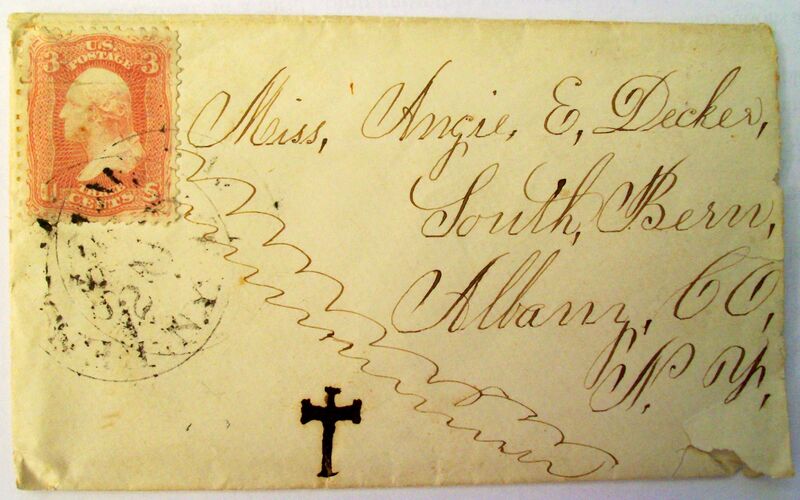 3 U.S. 3
POSTAGE
THREE
U CENTS S
Miss, Angie, E, Decker,
South, Bern,
Albany, CO,
N. Y,